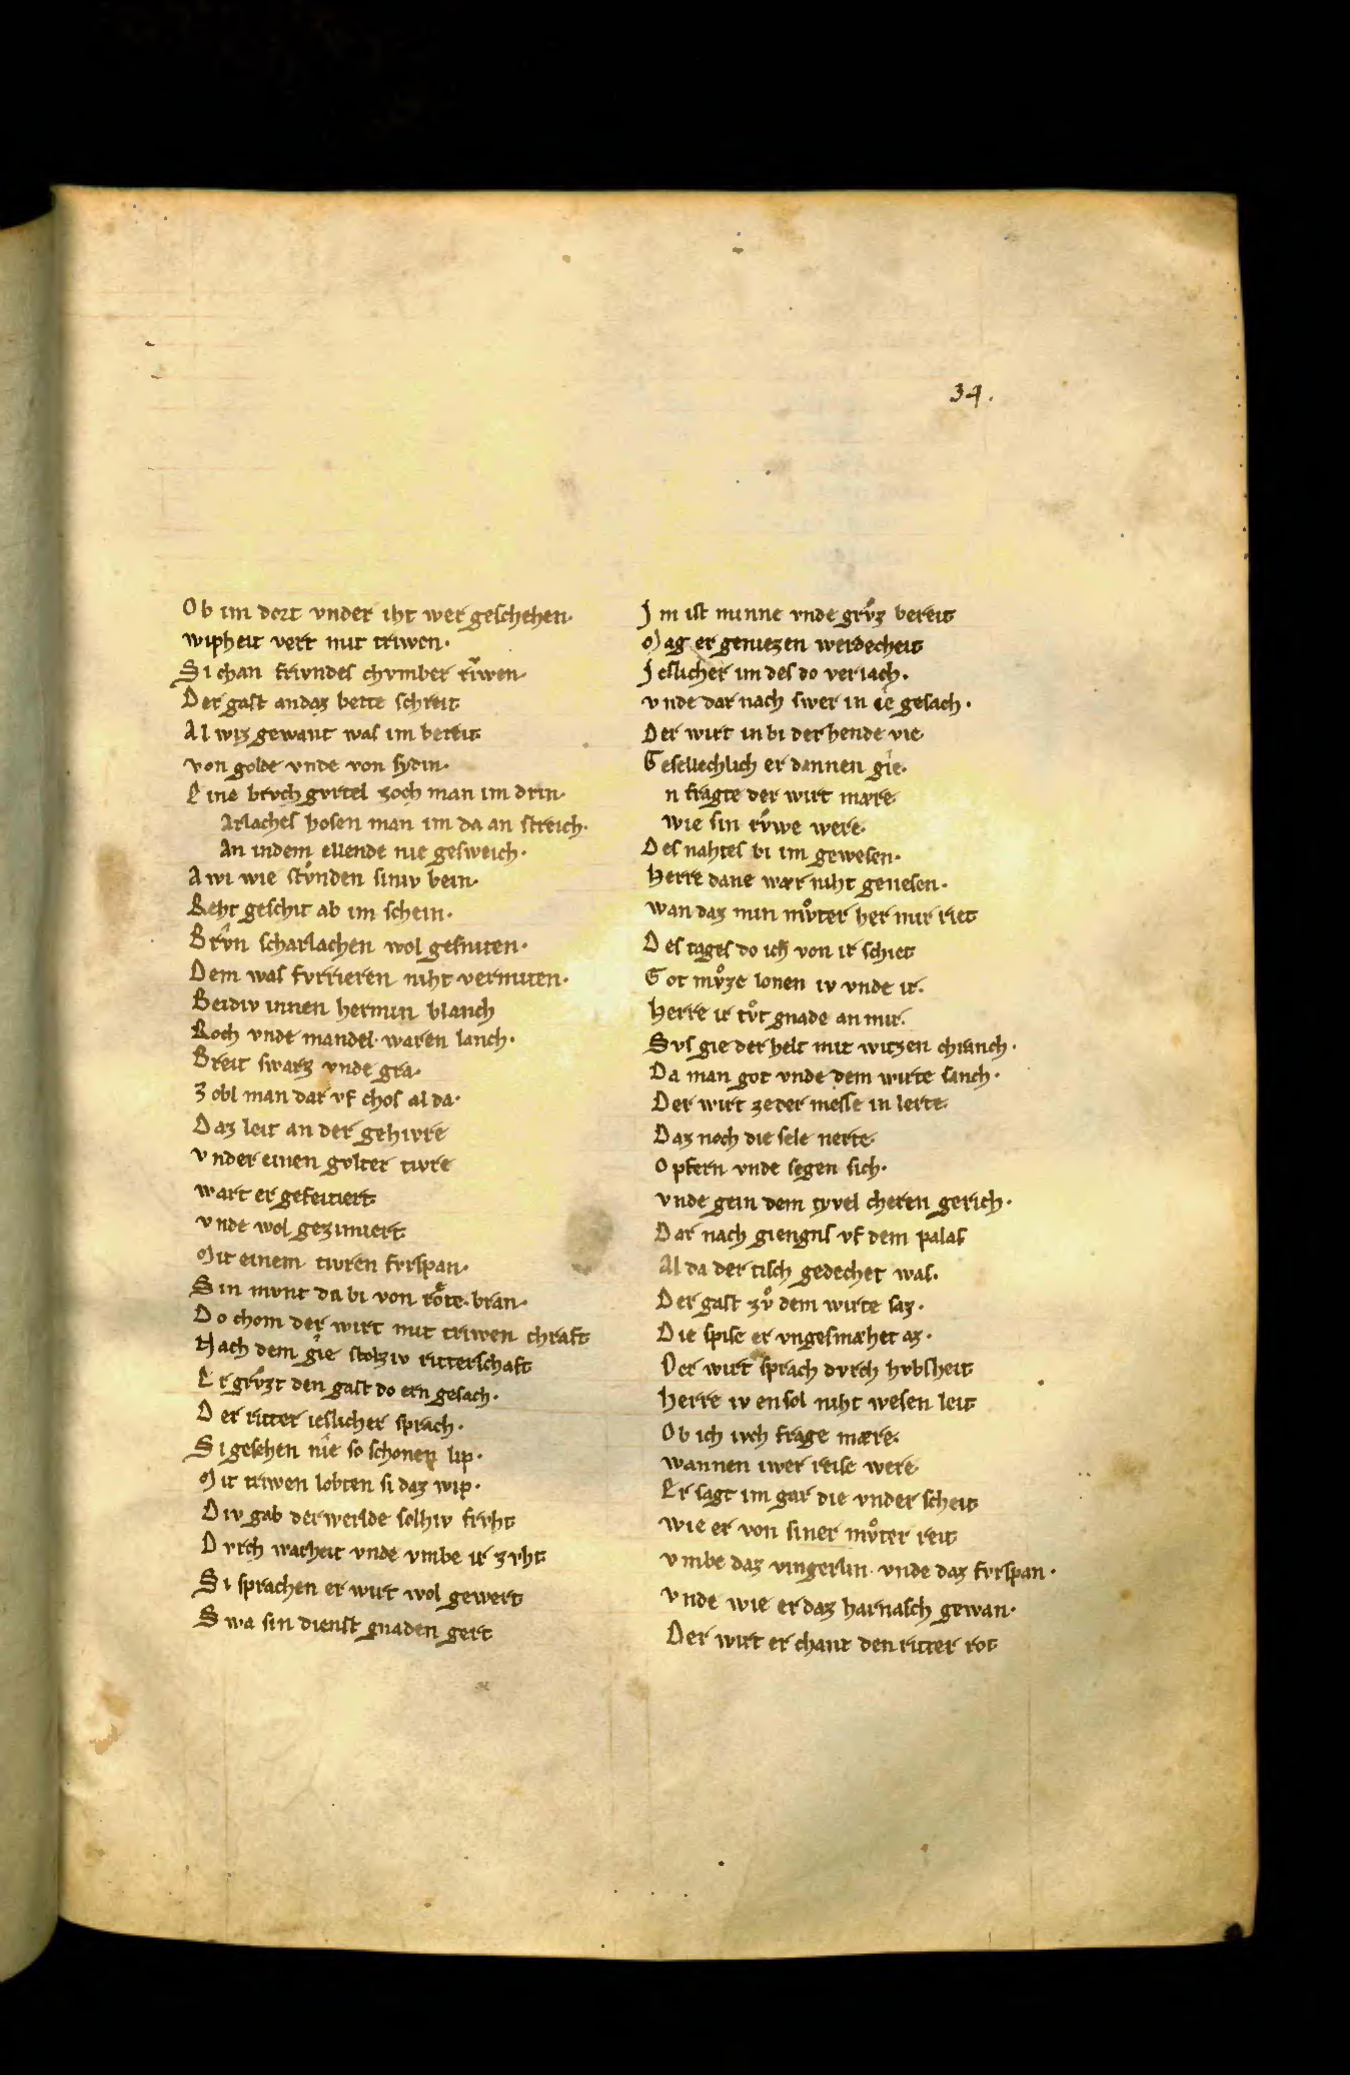 34.
Ob im dort vnder iht wer geschehen·
wipheit vert mit triwen·
Si chan frivndes chvmber riwen·
Der gast an daz bette schreit
Al wiz gewant was im bereit
von golde vnde von sydin·
Eine brvch gvrtel zoch man im drin·
Arlaches hosen man im da an streich·
An indem ellende nie gesweich·
Awi wie stvͦnden siniv bein·
Reht geschit ab im schein·
Brvͦn scharlachen wol gesniten·
Dem was fvrrieren niht vermiten·
Beidiv innen hermin blanch
Roch vnde mandel· waren lanch·
Breit swarz vnde gra·
Zobl man dar vf chos al da·
Daz leit an der gehivre
vnder einen gvlter tivre
wart er gefeitiert
vnde wol gezimiert
Mit einem tivren fvrspan·
Sin mvnt da bi von roͤte bran·
Do chom der wirt mit triwen chraft
Nach dem gie stolziv ritterschaft
Er grvͦzt den gast do ern gesach·
Der ritter ieslicher sprach·
Si gesehen nie so schonen lip·
Mit triwen lobten si daz wip·
Div gab der werlde solhiv frvht
Dvrch warheit vnde vmbe ir zvht
Si sprachen er wirt wol gewert
Swa sin dienst gnaden gert
Im ist minne vnde grvͦz bereit
Mag er geniezen werdecheit
Ieslicher im des do veriach·
vnde dar nach swer in ie gesach·
Der wirt in bi der hende vie
Gesellechlich er dannen gie·
n fragte der wirt mære
wie sin rvͦwe were·
Des nahtes bi im gewesen·
Herre dane wær niht genesen·
wan daz min mvͦter her mir riet
Des tages do ich von ir schiet
Got mvͦze lonen iv vnde ir·
Herre ir tvͦt gnade an mir·
Svs gie der helt mit witzen chranch·
Da man got vnde dem wirte sanch·
Der wirt ze der messe in lerte
Daz noch die sele nerte·
Opfern vnde segen sich·
vnde gein dem tyvel cheren gerich·
Dar nach giengns vf dem palas
Al da der tisch gedechet was·
Der gast zvͦ dem wirte saz·
Die spise er vngesmæhet az·
Der wirt sprach dvrch hvbsheit
Herre iv ensol niht wesen leit
Ob ich ivch frage mære·
wannen iwer reise were
Er sagt im gar die vnder scheit
wie er von siner mvͦter reit
vmbe daz vingerlin· vnde daz fvrspan·
vnde wie er daz harnasch gewan·
Der wirt er chant den ritter rot